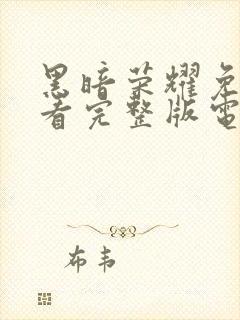 黑暗荣耀免
看完整版電
布韦